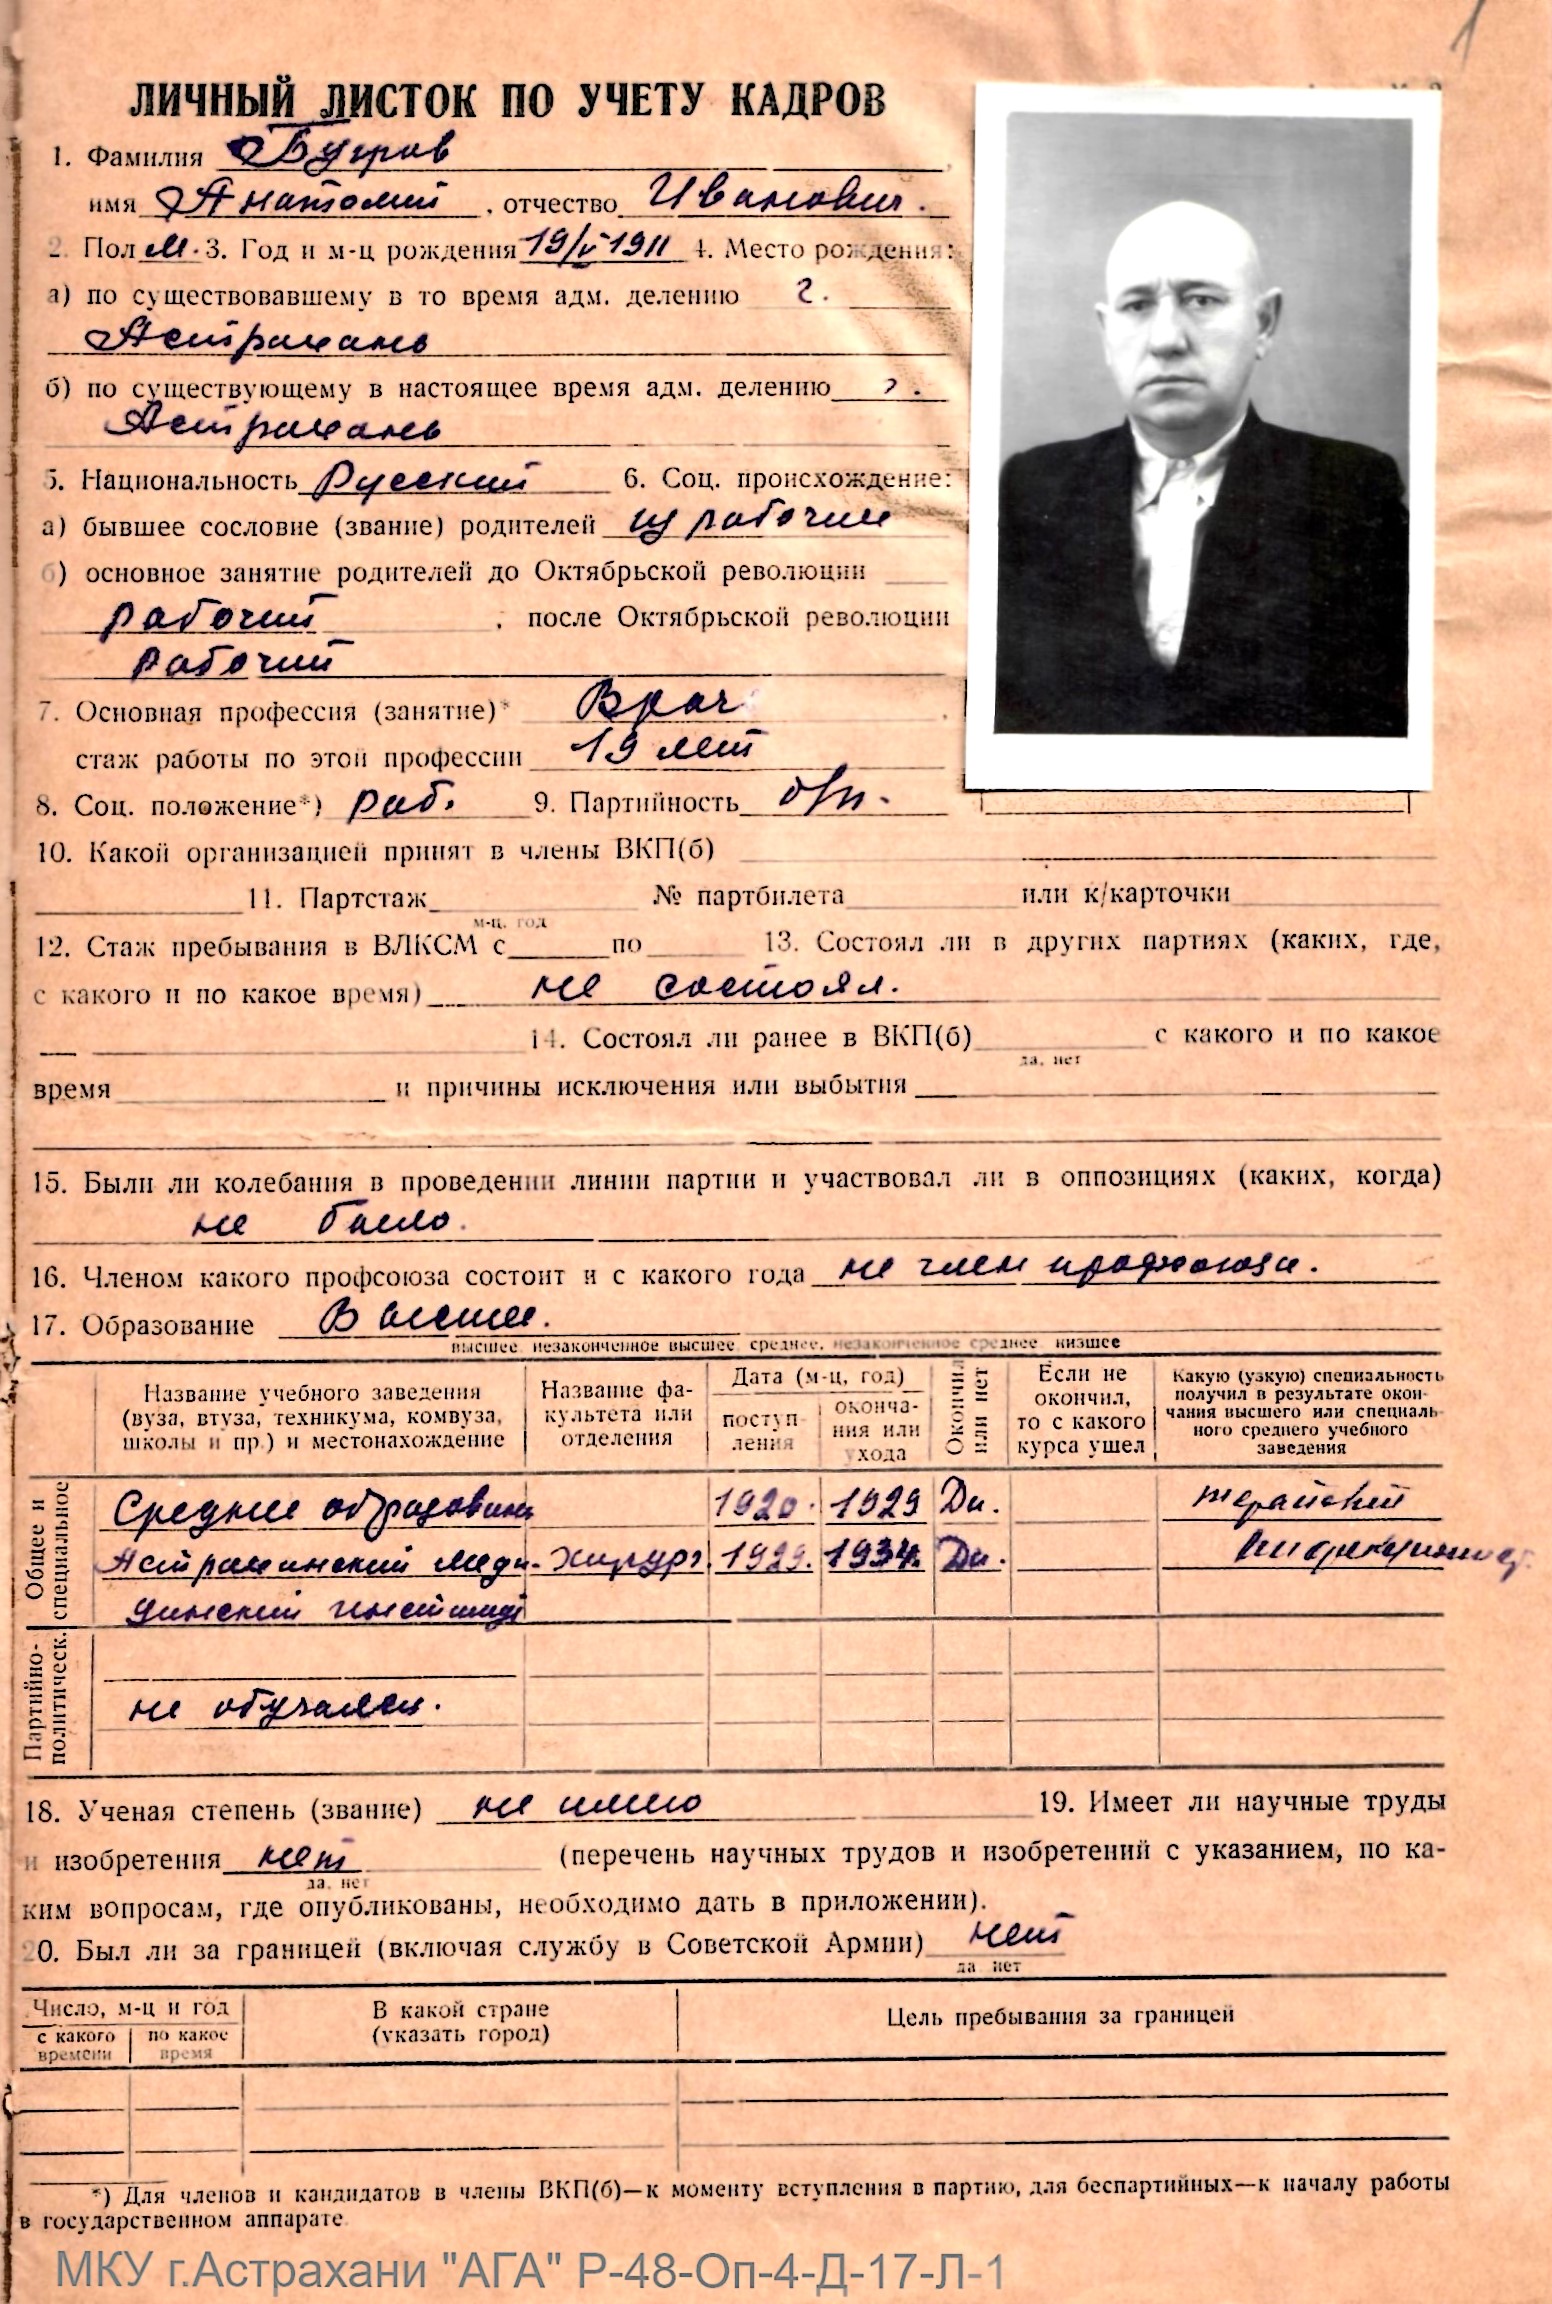 1
ЛИЧНЫЙ ЛИСТОК ПО УЧЕТУ КАДРОВ
1. Фамилия Бугров
имя Анатолий, отчество Иванович.
2. Пол м. 3. Год и м-ц рождения 19/V 1911 4. Место рождения:
а) по существовавшему в то время адм. делению г.
Астрахань
б) по существующему в настоящее время адм. делению г.
Астрахань
5. Национальность Русский 6. Соц. происхождение:
а) бывшее сословие (звание) родителей из рабочих
б) основное занятие родителей до Октябрьской революции
рабочий, после Октябрьской революции
рабочий
7. Основная профессия (занятие)* Врач
стаж работы по этой профессии 19 лет
8. Соц. положение*) раб. 9. Партийность б/п.
10. Какой организацией принят в члены ВКП(б)
11. Партстаж № партбилета или к/карточки
м-ц, год
12. Стаж пребывания в ВЛКСМ с по 13. Состоял ли в других партиях (каких, где,
с какого и по какое время) не состоял.
14. Состоял ли ранее в ВКП(б) с какого и по какое
да, нет
время и причины исключения или выбытия
15. Были ли колебания в проведении линии партии и участвовал ли в оппозициях (каких, когда)
не было.
16. Членом какого профсоюза состоит и с какого года не член профсоюза.
17. Образование Высшее.
высшее, незаконченное высшее, среднее, незаконченное среднее, низшее
Название учебного заведения (вуза, втуза, техникума, комвуза, школы и пр.) и местонахождение
Название факультета или отделения
Дата (м-ц, год)
поступления
окончания или ухода
Окончил или нет
Если не окончил, то с какого курса ушел
Какую (узкую) специальность получил в результате окончания высшего или специального среднего учебного заведения
Общее и специальное
Среднее образование 1920. 1929 Да.
Астраханский меди- хирург. 1929. 1934. Да.
цинский институт
Партийно-политическ.
не обучался.
18. Ученая степень (звание) не имею 19. Имеет ли научные труды
и изобретения нет (перечень научных трудов и изобретений с указанием, по ка-
да, нет
ким вопросам, где опубликованы, необходимо дать в приложении).
20. Был ли за границей (включая службу в Советской Армии) нет
да нет
Число, м-ц и год
с какого времени
по какое время
В какой стране (указать город)
Цель пребывания за границей
*) Для членов и кандидатов в члены ВКП(б)—к моменту вступления в партию, для беспартийных—к началу работы
в государственном аппарате
МКУ г.Астрахани "АГА" Р-48-Оп-4-Д-17-Л-1